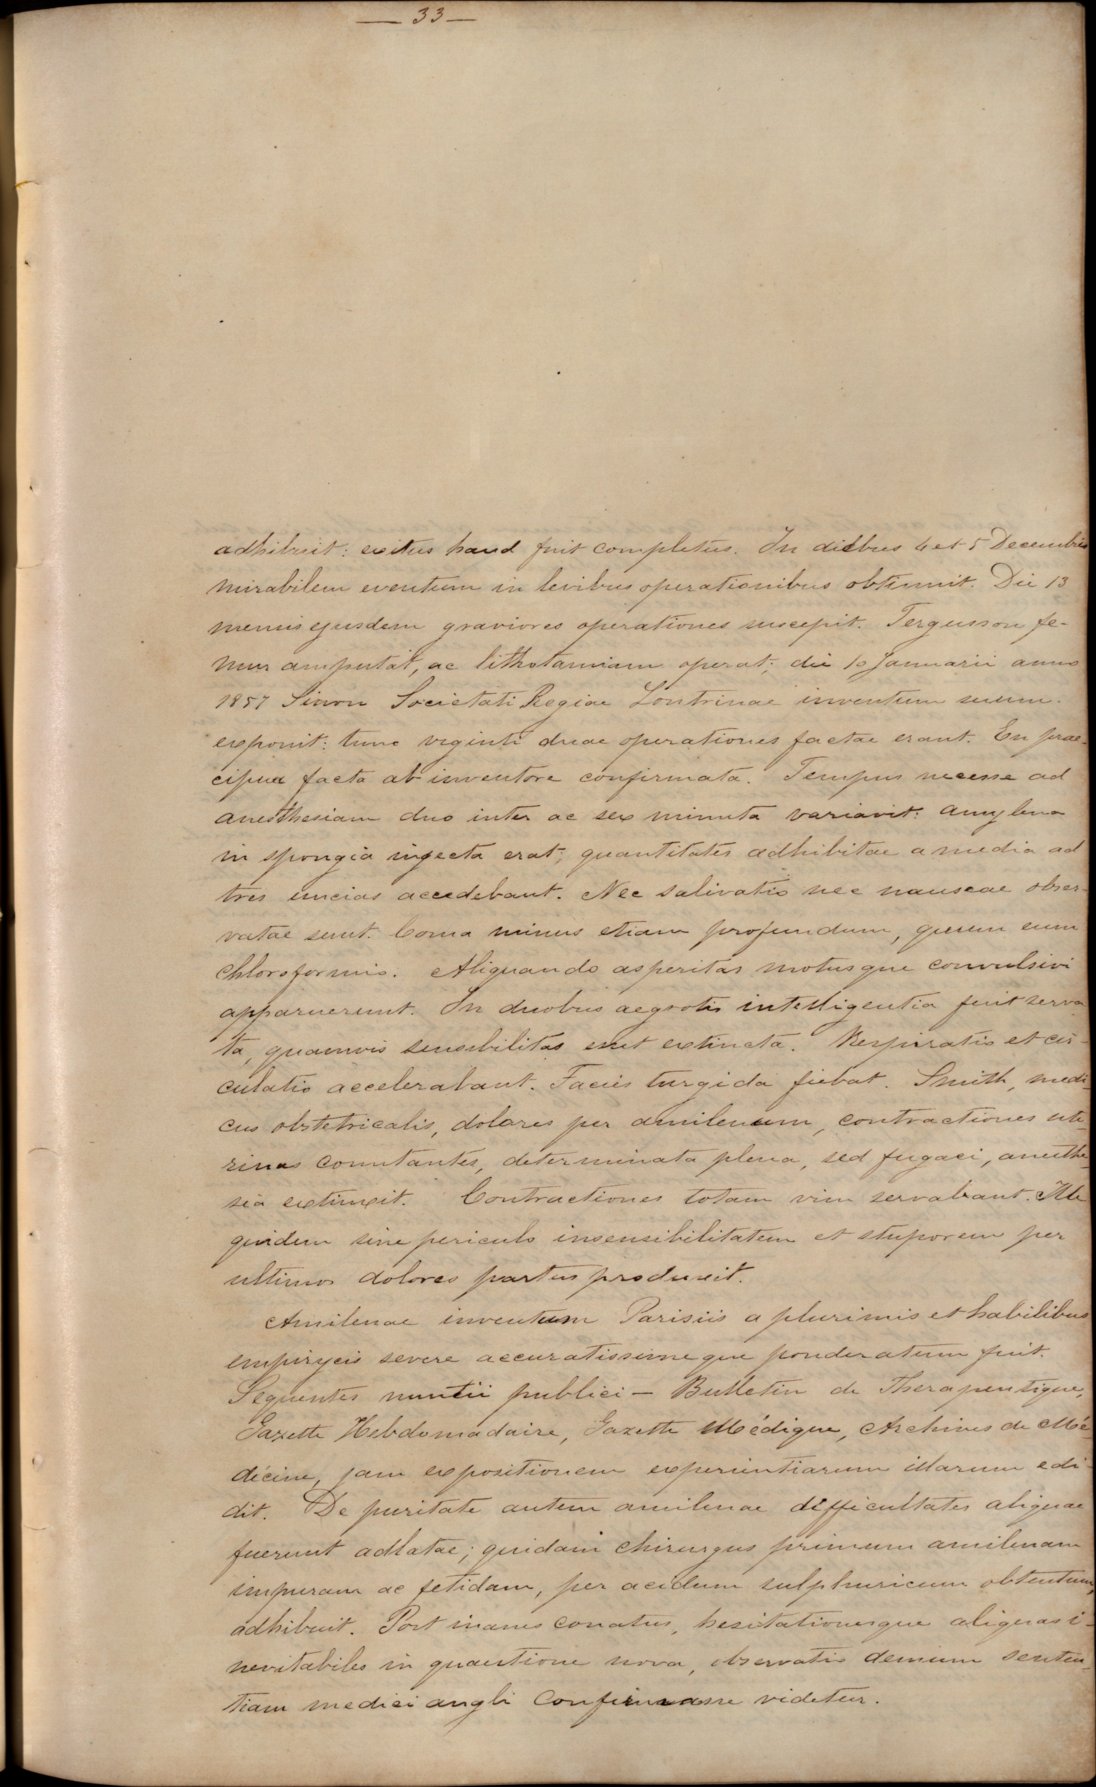 — 33 —
adhibuit: exitus haud fuit completus. In diebus 4 et 5 Decembris
mirabilem eventum in levibus operationibus obtinuit. Die 13
mensis ejusdem graviores operationes suscepit. Fergusson fe-
mur amputat, ac lithotamiam operat; die 10 Januarii anno
1857 Sinon Societati Regiae Lontrinae inventum suum
exponit: tunc viginti duae operationes factae erant. En prae-
cipua facta ab inventore confirmata. Tempus necesse ad
anesthesiam duo inter ac sex minuta variavit: amylena
in spongia injecta erat; quantitates adhibitae a media ad
tres uncias accedebant. Nec salivatio nec nauseae obser-
vatae sunt. Coma minus etiam profundum, quum cum
chloroformio. Aliquando asperitas motusque convulsivi
apparuerunt. In duobus aegrotis intelligentia fuit serva-
ta, quamvis sensibilitas esset extincta. Respiratio et cir-
culatio accelerabant. Facies turgida fiebat. Smith, medi-
cus obstetricalis, dolores per amilenum, contractiones ute-
rinas comitantes, determinata plena, sed fugaci, anesthe-
sia extinxit. Contractiones totam vim servabant. Ille
quidem sine periculo insensibilitatem et stuporem per
ultimos dolores partus produxit.
Amilenae inventum Parisiis a plurimis et habilibus
empirycis severe accuratissimeque ponderatum fuit.
Sequentes nuntii publici — Bulletin de Therapeutique,
Gazette Hebdomadaire, Gazette Médique, Archives de Mé-
décine, jam expositionem experientiarum illarum edi-
dit. De puritate autem amilenae difficultates aliquae
fuerunt adlatae; quidam chirurgus primum amilenam
impuram ac fetidam, per acidum sulphuricum obtentum,
adhibuit. Post inanes conatus, hesitationesque aliquas i-
nevitabiles in quaestione nova, observatio demum senten-
tiam medici angli confirmasse videtur.